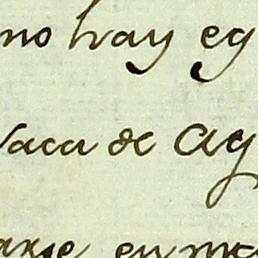 no hay eg
vaca de ag
arse en mo